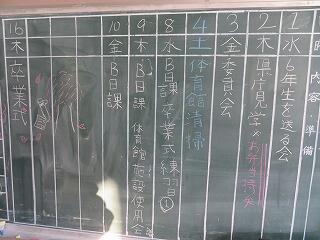 内容・準備
1 水 6年生を送る会
2 木 県庁見学× お弁当持参
3 金 委員会
4 土 体育館清掃
8 水 B日課 卒業式練習①
9 木 B日課 体育館施設使用会
10 金 B日課
16 木 卒業式